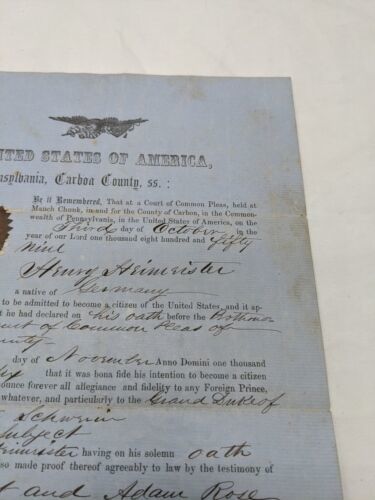 UNITED STATES OF AMERICA,
nsylvania, Carbon County, ss. :
Be it Remembered, That at a Court of Common Pleas, held at
Mauch Chunk, in and for the County of Carbon, in the Common-
wealth of Pennsylvania, in the United States of America, on the
Third day of October, in the
year of our Lord one thousand eight hundred and fifty
nine
Henry Heimeister
a native of Germany
admitted to become a citizen of the United States, and it ap-
t he had declared on his oath before the Prothonor
ourt of Common Pleas of
ounty
day of November Anno Domini one thousand
that it was bona fide his intention to become a citizen
ounce forever all allegiance and fidelity to any Foreign Prince,
whatever, and particularly to the Grand Duke of
Schwerin
Subject
eimeister having on his solemn oath
so made proof thereof agreeably to law by the testimony of
t and Adam Rose